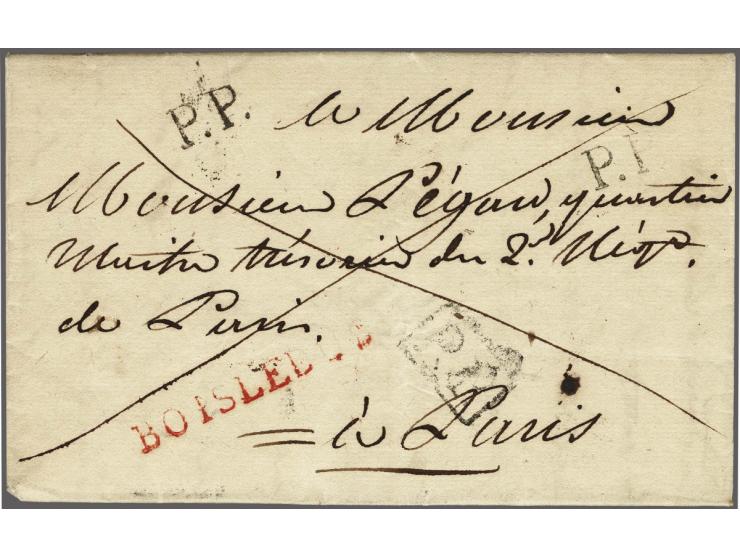 P.P.
a Monsieur
P.P
Monsieur Pégard, quartier
Maitre trésorier du 2.d Régt.
de Paris.
BOISLEDUC
P.P.
à Paris